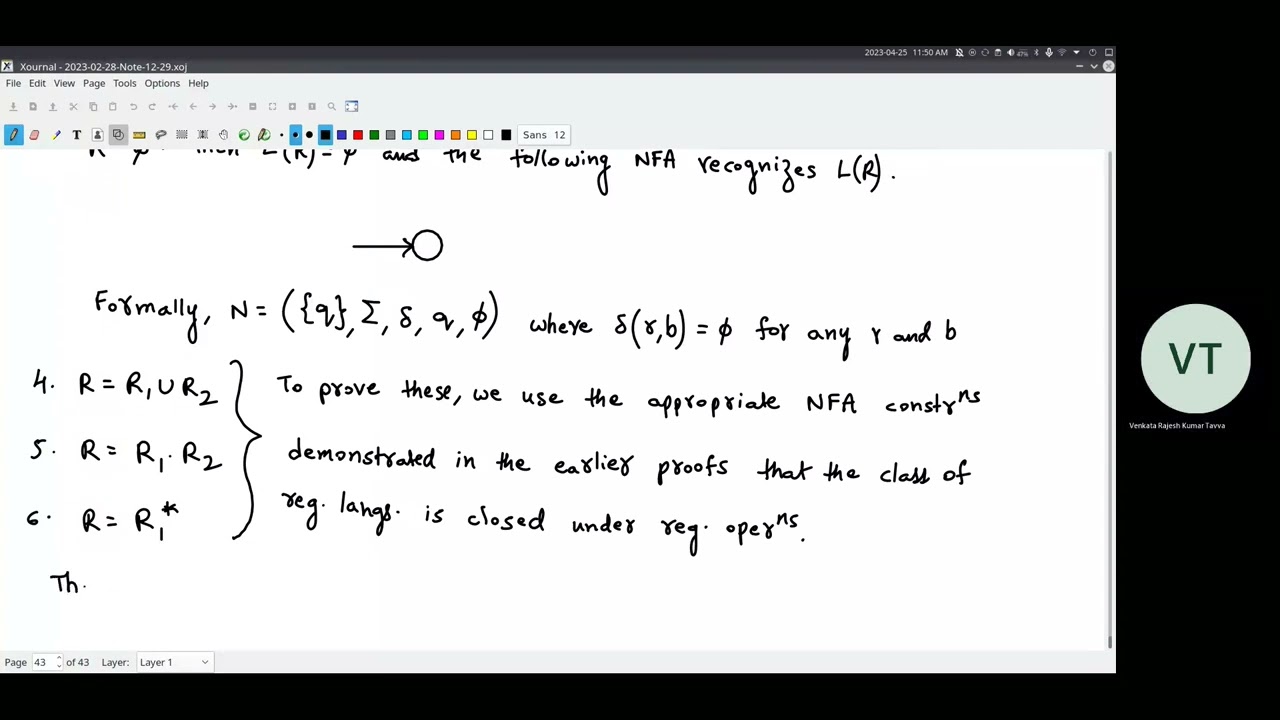 2023-04-25 11:50 AM
Xournal - 2023-02-28-Note-12-29.xoj
File Edit View Page Tools Options Help
Sans 12
R = φ. Then L(R) = φ and the following NFA recognizes L(R).
Formally, N = ({q}, Σ, δ, q, φ) where δ(r,b) = φ for any r and b
4. R = R₁ ∪ R₂
To prove these, we use the appropriate NFA constrⁿˢ
5. R = R₁. R₂
demonstrated in the earlier proofs that the class of
6. R = R₁*
reg. langs. is closed under reg. operⁿˢ.
Th.
VT
Venkata Rajesh Kumar Tavva
Page 43 of 43 Layer: Layer 1